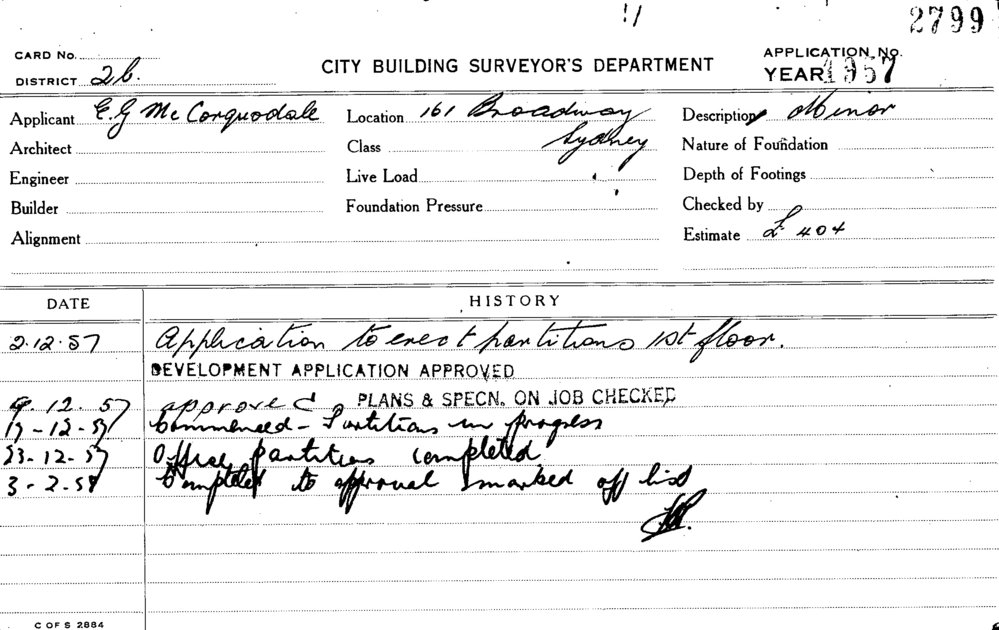 2799
CARD No.
CITY BUILDING SURVEYOR'S DEPARTMENT
APPLICATION No.
DISTRICT 2b.
YEAR 1957
Applicant E.G McCorquodale
Location 161 Broadway
Sydney
Description Minor
Architect
Class
Nature of Foundation
Engineer
Live Load
Depth of Footings
Builder
Foundation Pressure
Checked by
Alignment
Estimate £ 404
DATE
HISTORY
2.12.57 Application to erect partitions 1st floor.
DEVELOPMENT APPLICATION APPROVED
9.12.57 approved PLANS & SPECN. ON JOB CHECKED
17-12-57 Commenced - Partitions in progress
23-12-57 Office partitions completed
3-2-58 Completed to approval & marked off list
C OF S 2884